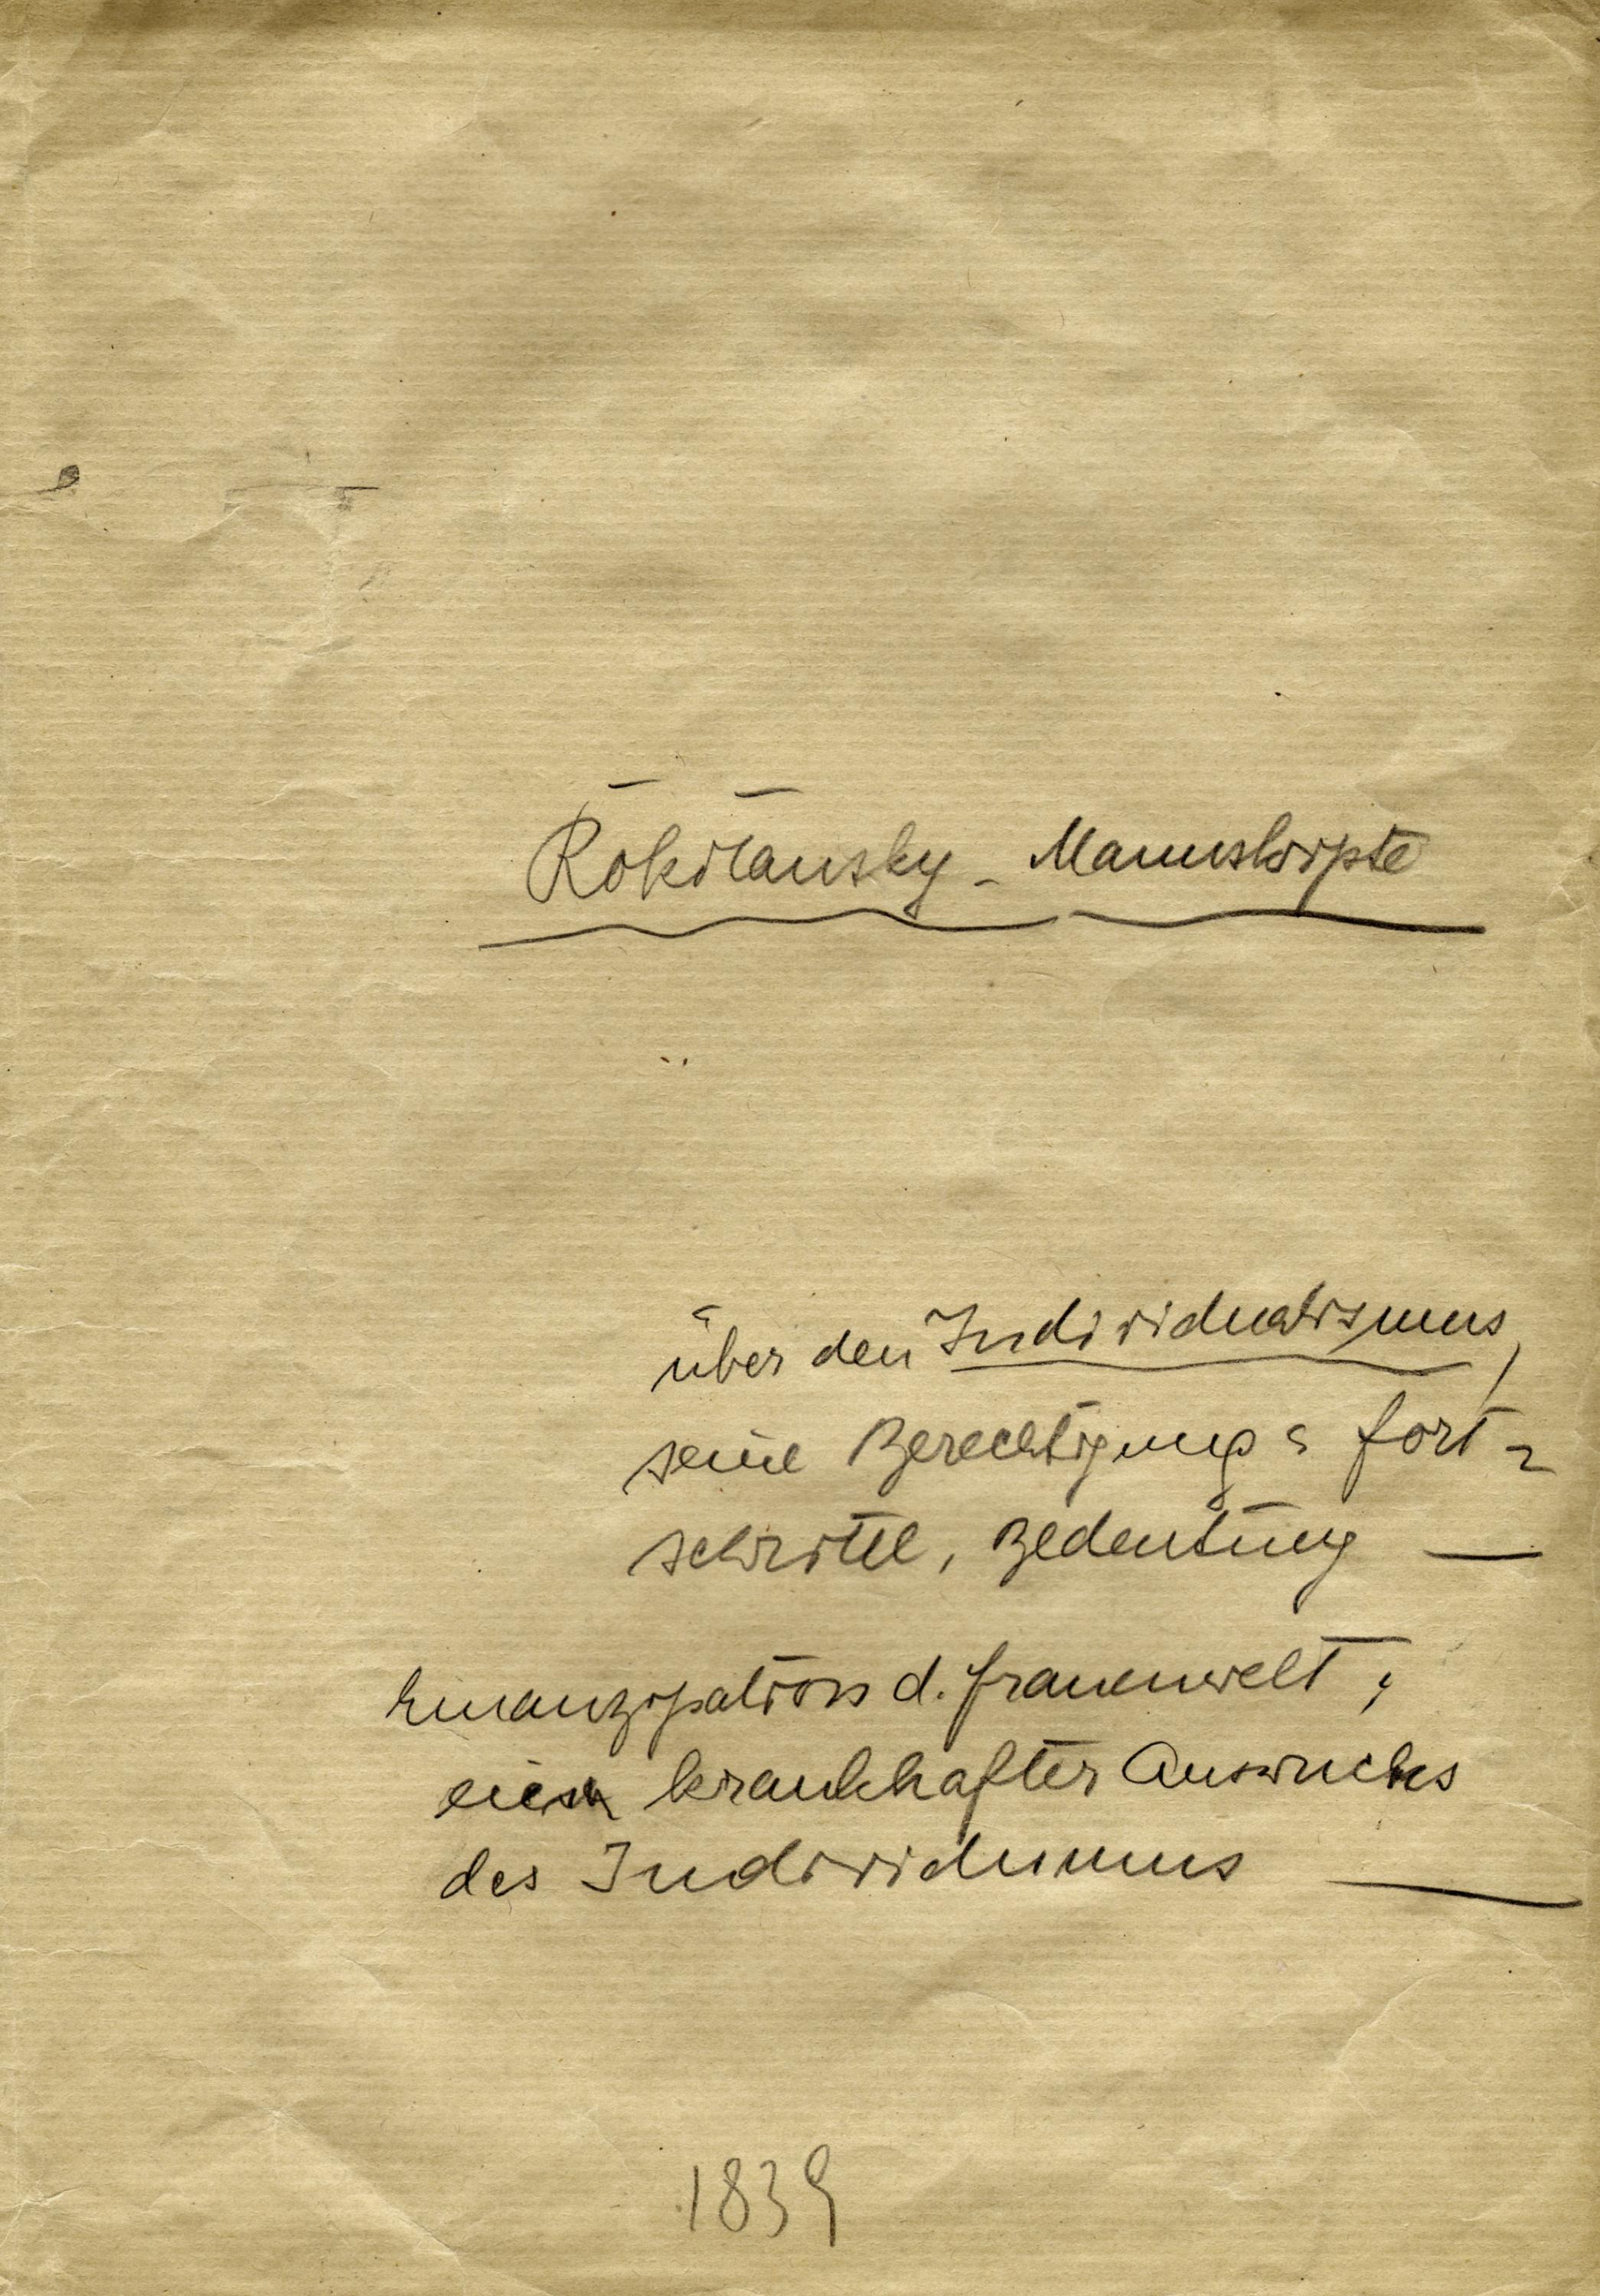 Rokitansky - Manuskripte
über den Individualismus,
seine Berechtigung & fort-
schritte, Bedeutung —
Emanzipation d. frauenwelt ;
ein krankhafter Auswuchs
des Individuums —
1839